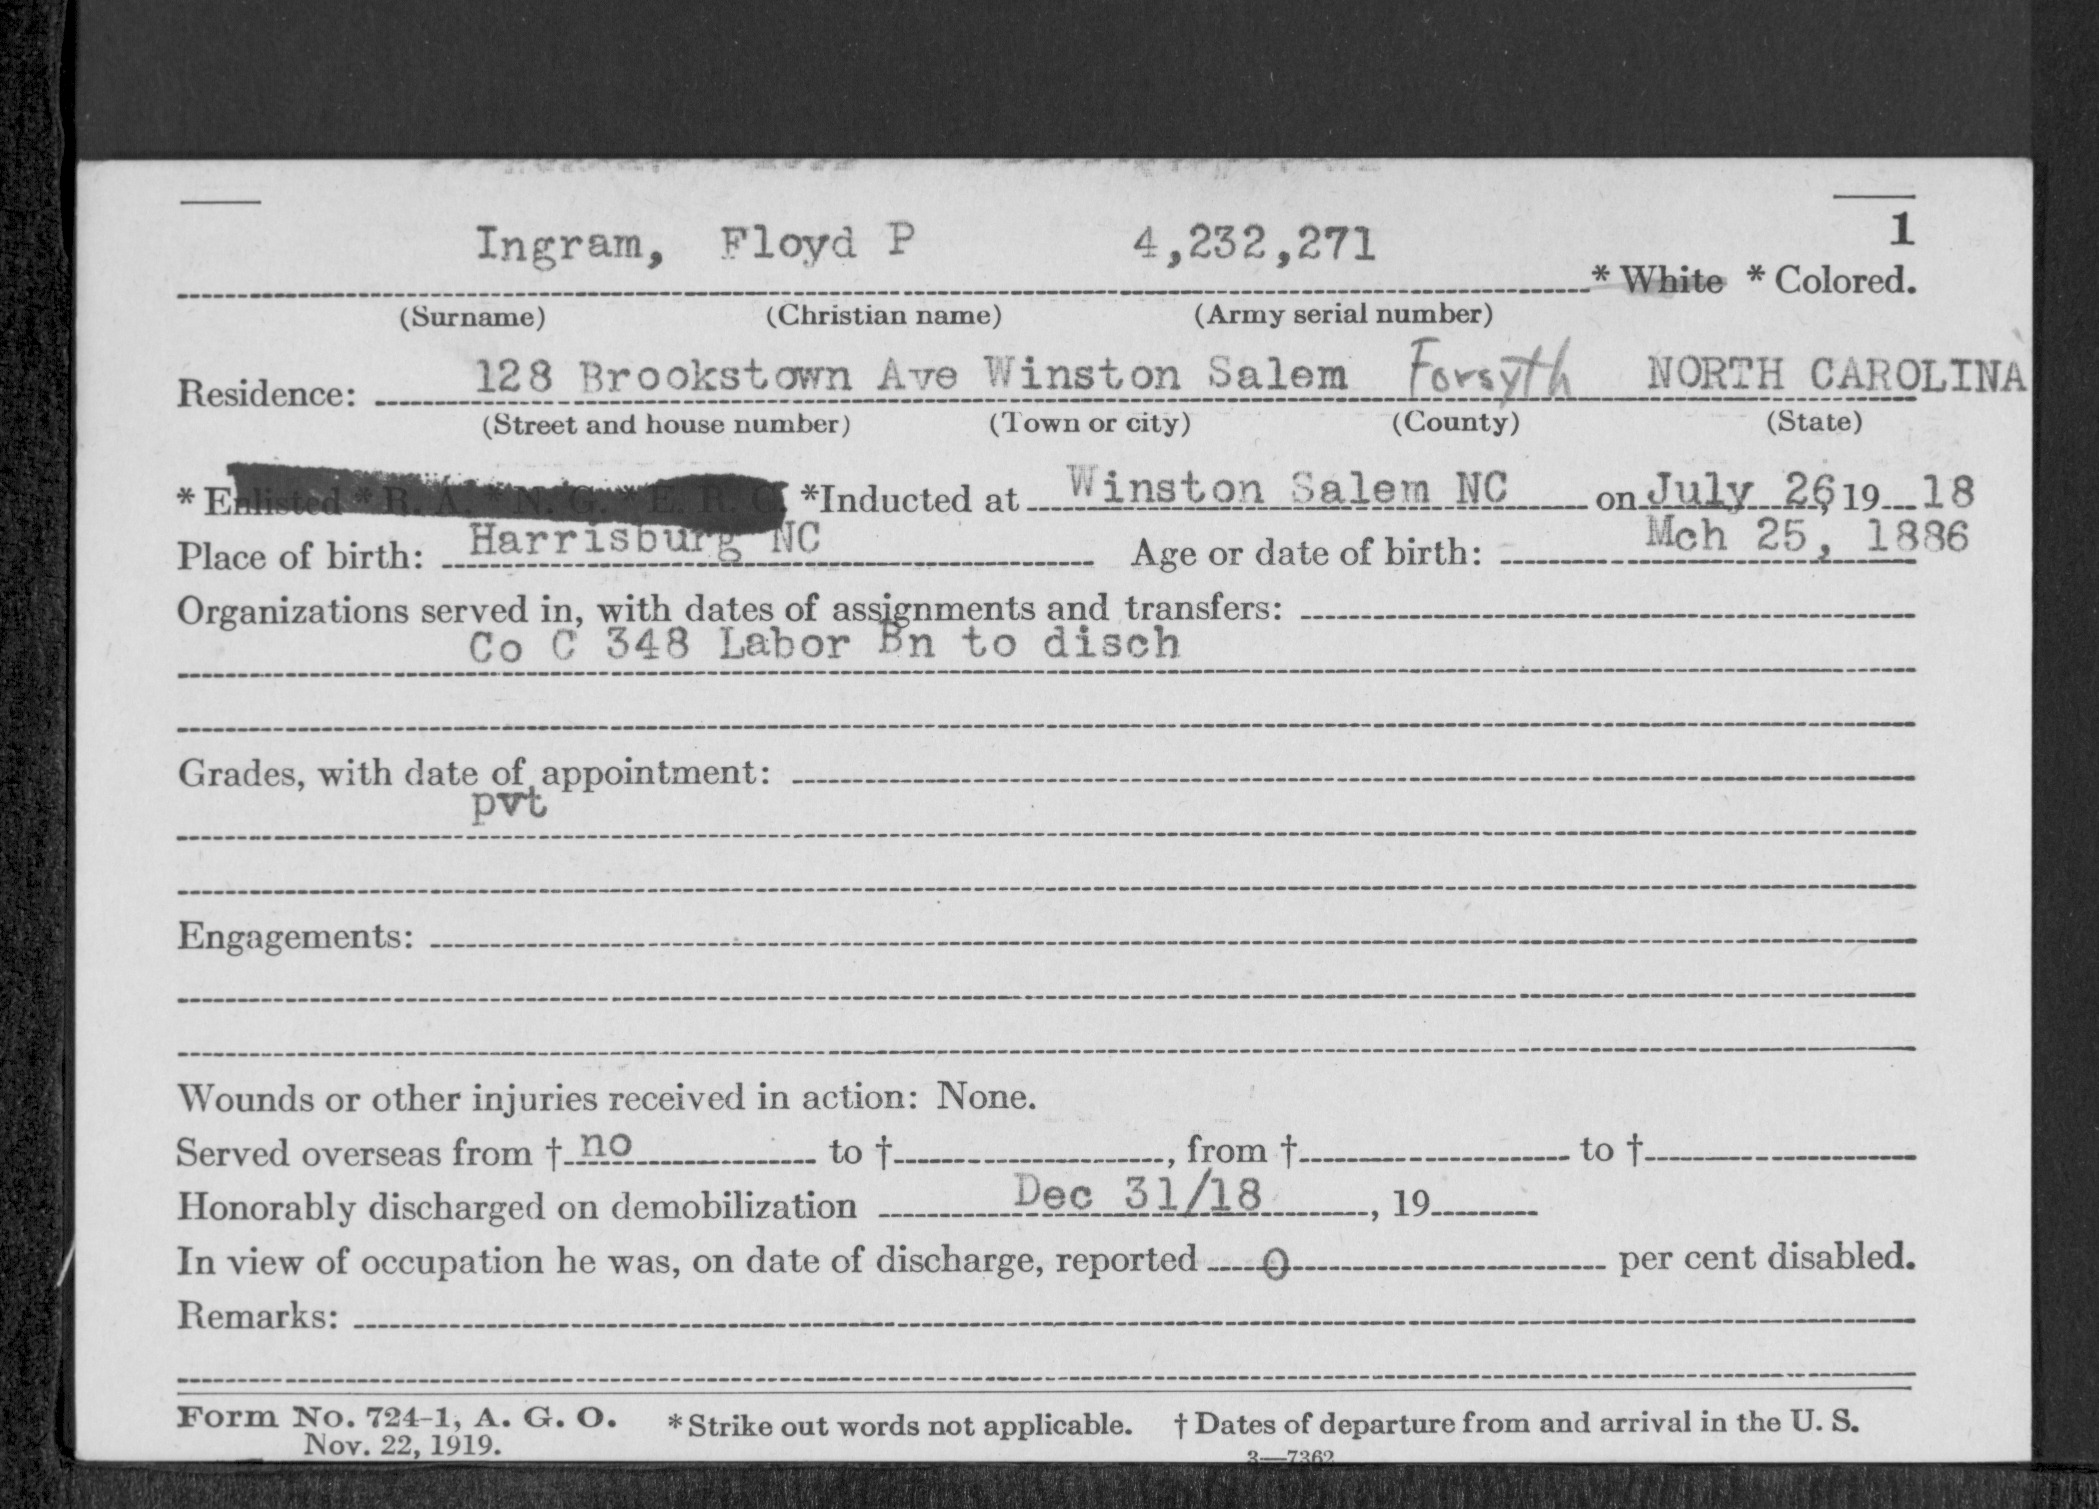 1
Ingram, Floyd P 4,232,271 * White * Colored.
(Surname) (Christian name) (Army serial number)
Residence: 128 Brookstown Ave Winston Salem Forsyth NORTH CAROLINA
(Street and house number) (Town or city) (County) (State)
* Enlisted * R. A. * N. G. * E. R. C. *Inducted at Winston Salem NC on July 26, 19 18
Place of birth: Harrisburg NC Age or date of birth: Mch 25, 1886
Organizations served in, with dates of assignments and transfers:
Co C 348 Labor Bn to disch
Grades, with date of appointment:
pvt
Engagements:
Wounds or other injuries received in action: None.
Served overseas from † no to † , from † to †
Honorably discharged on demobilization Dec 31/18 , 19
In view of occupation he was, on date of discharge, reported 0 per cent disabled.
Remarks:
Form No. 724-1, A. G. O. * Strike out words not applicable. † Dates of departure from and arrival in the U. S.
Nov. 22, 1919. 3—7362